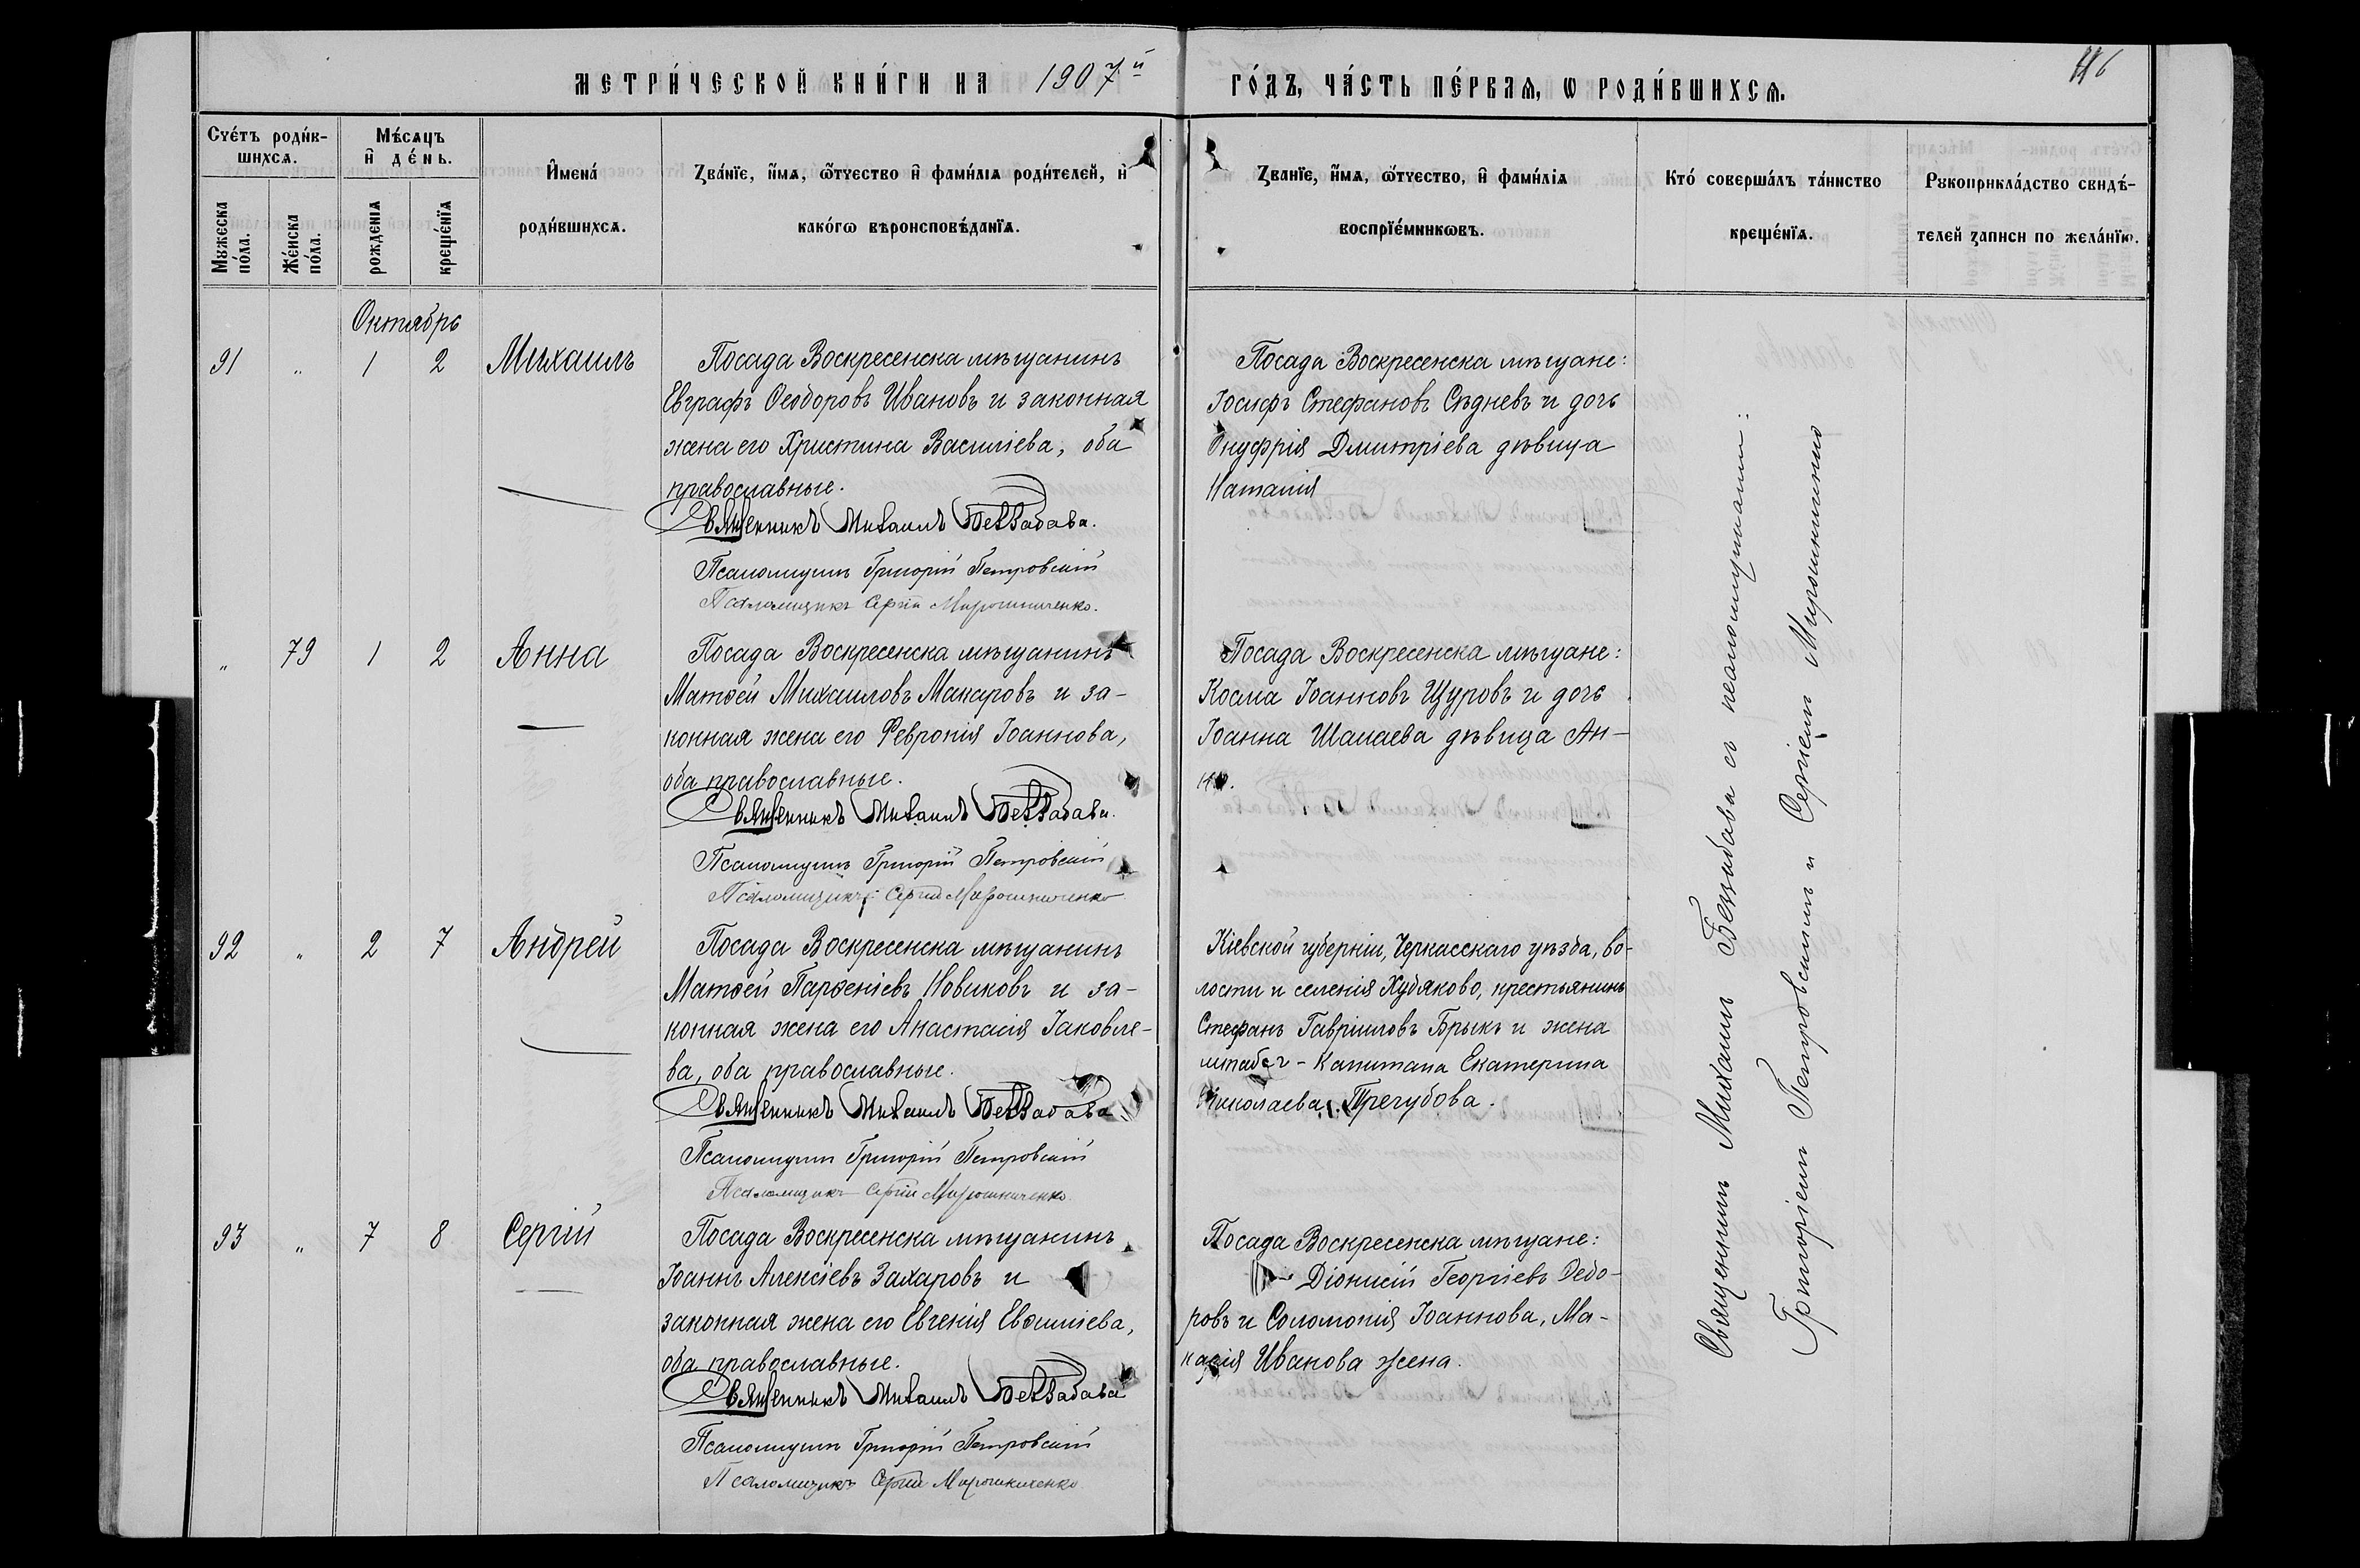 МЕТРИ́ЧЕСКОЙ КНИ́ГИ НА 1907й ГО́ДЪ, ЧА́СТЬ ПЕ́РВАѦ, Ѡ РОДИ́ВШИХСѦ.
116
Сче́тъ роди́в-
шихсѧ.
Мꙋжеска
по́ла.
Же́нска
по́ла.
Мѣ́сѧцъ
и҆ де́нь.
рожденїѧ
креще́нїѧ
И҆мена́
роди́вшихсѧ.
Зва́нїе, и҆́мѧ, ѻ҆́тчество и҆ фами́лїѧ роди́телей, и҆
како́гѡ вѣроисповѣ́данїѧ.
Зва́нїе, и҆́мѧ, ѻ҆́тчество, и҆ фами́лїѧ
воспрїе́мникѡвъ.
Кто́ соверша́лъ та́инство
креще́нїѧ.
Рꙋкоприкла́дство свидѣ́-
телей записи по жела́нїю.
Октябрь
91 " 1 2 Михаилъ
Посада Воскресенска мѣщанинъ
Евграфъ Ѳеодоровъ Ивановъ и законная
жена его Христина Василіева, оба
православные.
Священникъ Михаилъ Беззабава.
Псаломщикъ Григорій Петровскій
Псаломщикъ Сергій Мирошниченко.
Посада Воскресенска мѣщане:
Іосифъ Стефановъ Сѣдневъ и дочь
Онуфрія Дмитріева дѣвица
Наталія
" 79 1 2 Анна
Посада Воскресенска мѣщанинъ
Матѳей Михаиловъ Макаровъ и за-
конная жена его Февронія Іоаннова,
оба православные.
Священникъ Михаилъ Беззабава.
Псаломщикъ Григорій Петровскій
Псаломщикъ Сергій Мирошниченко
Посада Воскресенска мѣщане:
Косма Іоанновъ Щуровъ и дочь
Іоанна Шалаева дѣвица Ан-
на.
92 " 2 7 Андрей
Посада Воскресенска мѣщанинъ
Матѳей Парѳеніевъ Новиковъ и за-
конная жена его Анастасія Іаковле-
ва, оба православные.
Священникъ Михаилъ Беззабава
Псаломщикъ Григорій Петровскій
Псаломщикъ Сергій Мирошниченко.
Кіевской губерніи, Черкасскаго уѣзда, во-
лости и селенія Худяково, крестьянинъ
Стефанъ Гавріиловъ Брыкъ и жена
штабсъ-Капитана Екатерина
Николаева Трегубова.
93 " 7 8 Сергій
Посада Воскресенска мѣщанинъ
Іоаннъ Алексіевъ Захаровъ и
законная жена его Евгенія Евѳиміева,
оба православные.
Священникъ Михаилъ Беззабава
Псаломщикъ Григорій Петровскій
Псаломщикъ Сергій Мирошниченко
Посада Воскресенска мѣщане:
Діонисій Георгіевъ Ѳедо-
ровъ и Соломонія Іоаннова, Ма-
карія Иванова жена.
Священникъ Михаилъ Беззабава съ псаломщиками:
Григоріемъ Петровскимъ и Сергіемъ Мирошниченко